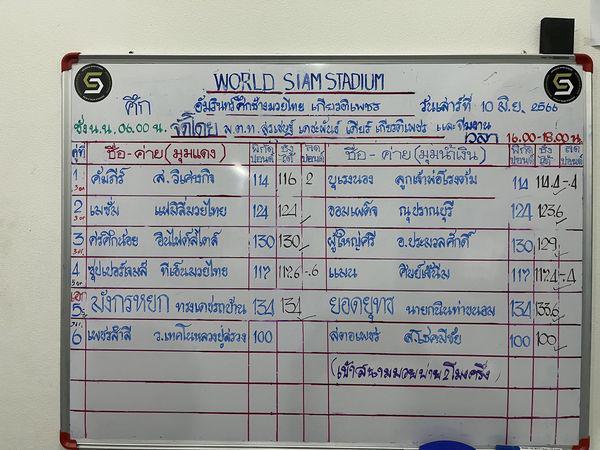 WORLD SIAM STADIUM
ศึก อัมรินทร์ศึกช้างมวยไทย เกียรติเพชร วันเสาร์ที่ 10 มิ.ย. 2566
ชั่ง น.น. 06.00 น. จัดโดย พ.ต.ท. สุรเชษฐ์ เดชะพันธ์ เสี่ยร์ เกียรติเพชร และทีมงาน เวลา 16.00-18.00 น.
คู่ที่ ชื่อ-ค่าย (มุมแดง) พิกัด ปอนด์ ชั่ง ได้ ลด ปอนด์ ชื่อ-ค่าย (มุมน้ำเงิน) พิกัด ปอนด์ ชั่ง ได้ ลด ปอนด์
1 คัมภีร์ ส.วิเศษกิจ 114 116 2 บุเรงนอง ลูกเจ้าพ่อโรงต้ม 114 114.4 -.4
2 เมชั่ม แฟมิลี่มวยไทย 124 124 จอมเผด็จ ณุปราณบุรี 124 123.6
3 ศรศึกน้อย อินไฟต์สไตล์ 130 130 ผู้ใหญ่ศรี อ.ประมวลศักดิ์ 130 129
4 ซุปเปอร์เจมส์ ทีเอ็นมวยไทย 117 117.6 -.6 แมน ศิษย์เจ๊นิ่ม 117 117.4 -.4
เอก 5 มังกรหยก ทรงเดชรถบ้าน 134 134 ยอดยุทธ นายกนินท่าขนอม 134 133.6
6 เพชรสำลี ว.เทคโนหลวงปู่สรวง 100 สตอเพชร ส.โชคมีชัย 100 100
(เข้าสนามมวยบ่าย 2 โมงครึ่ง)